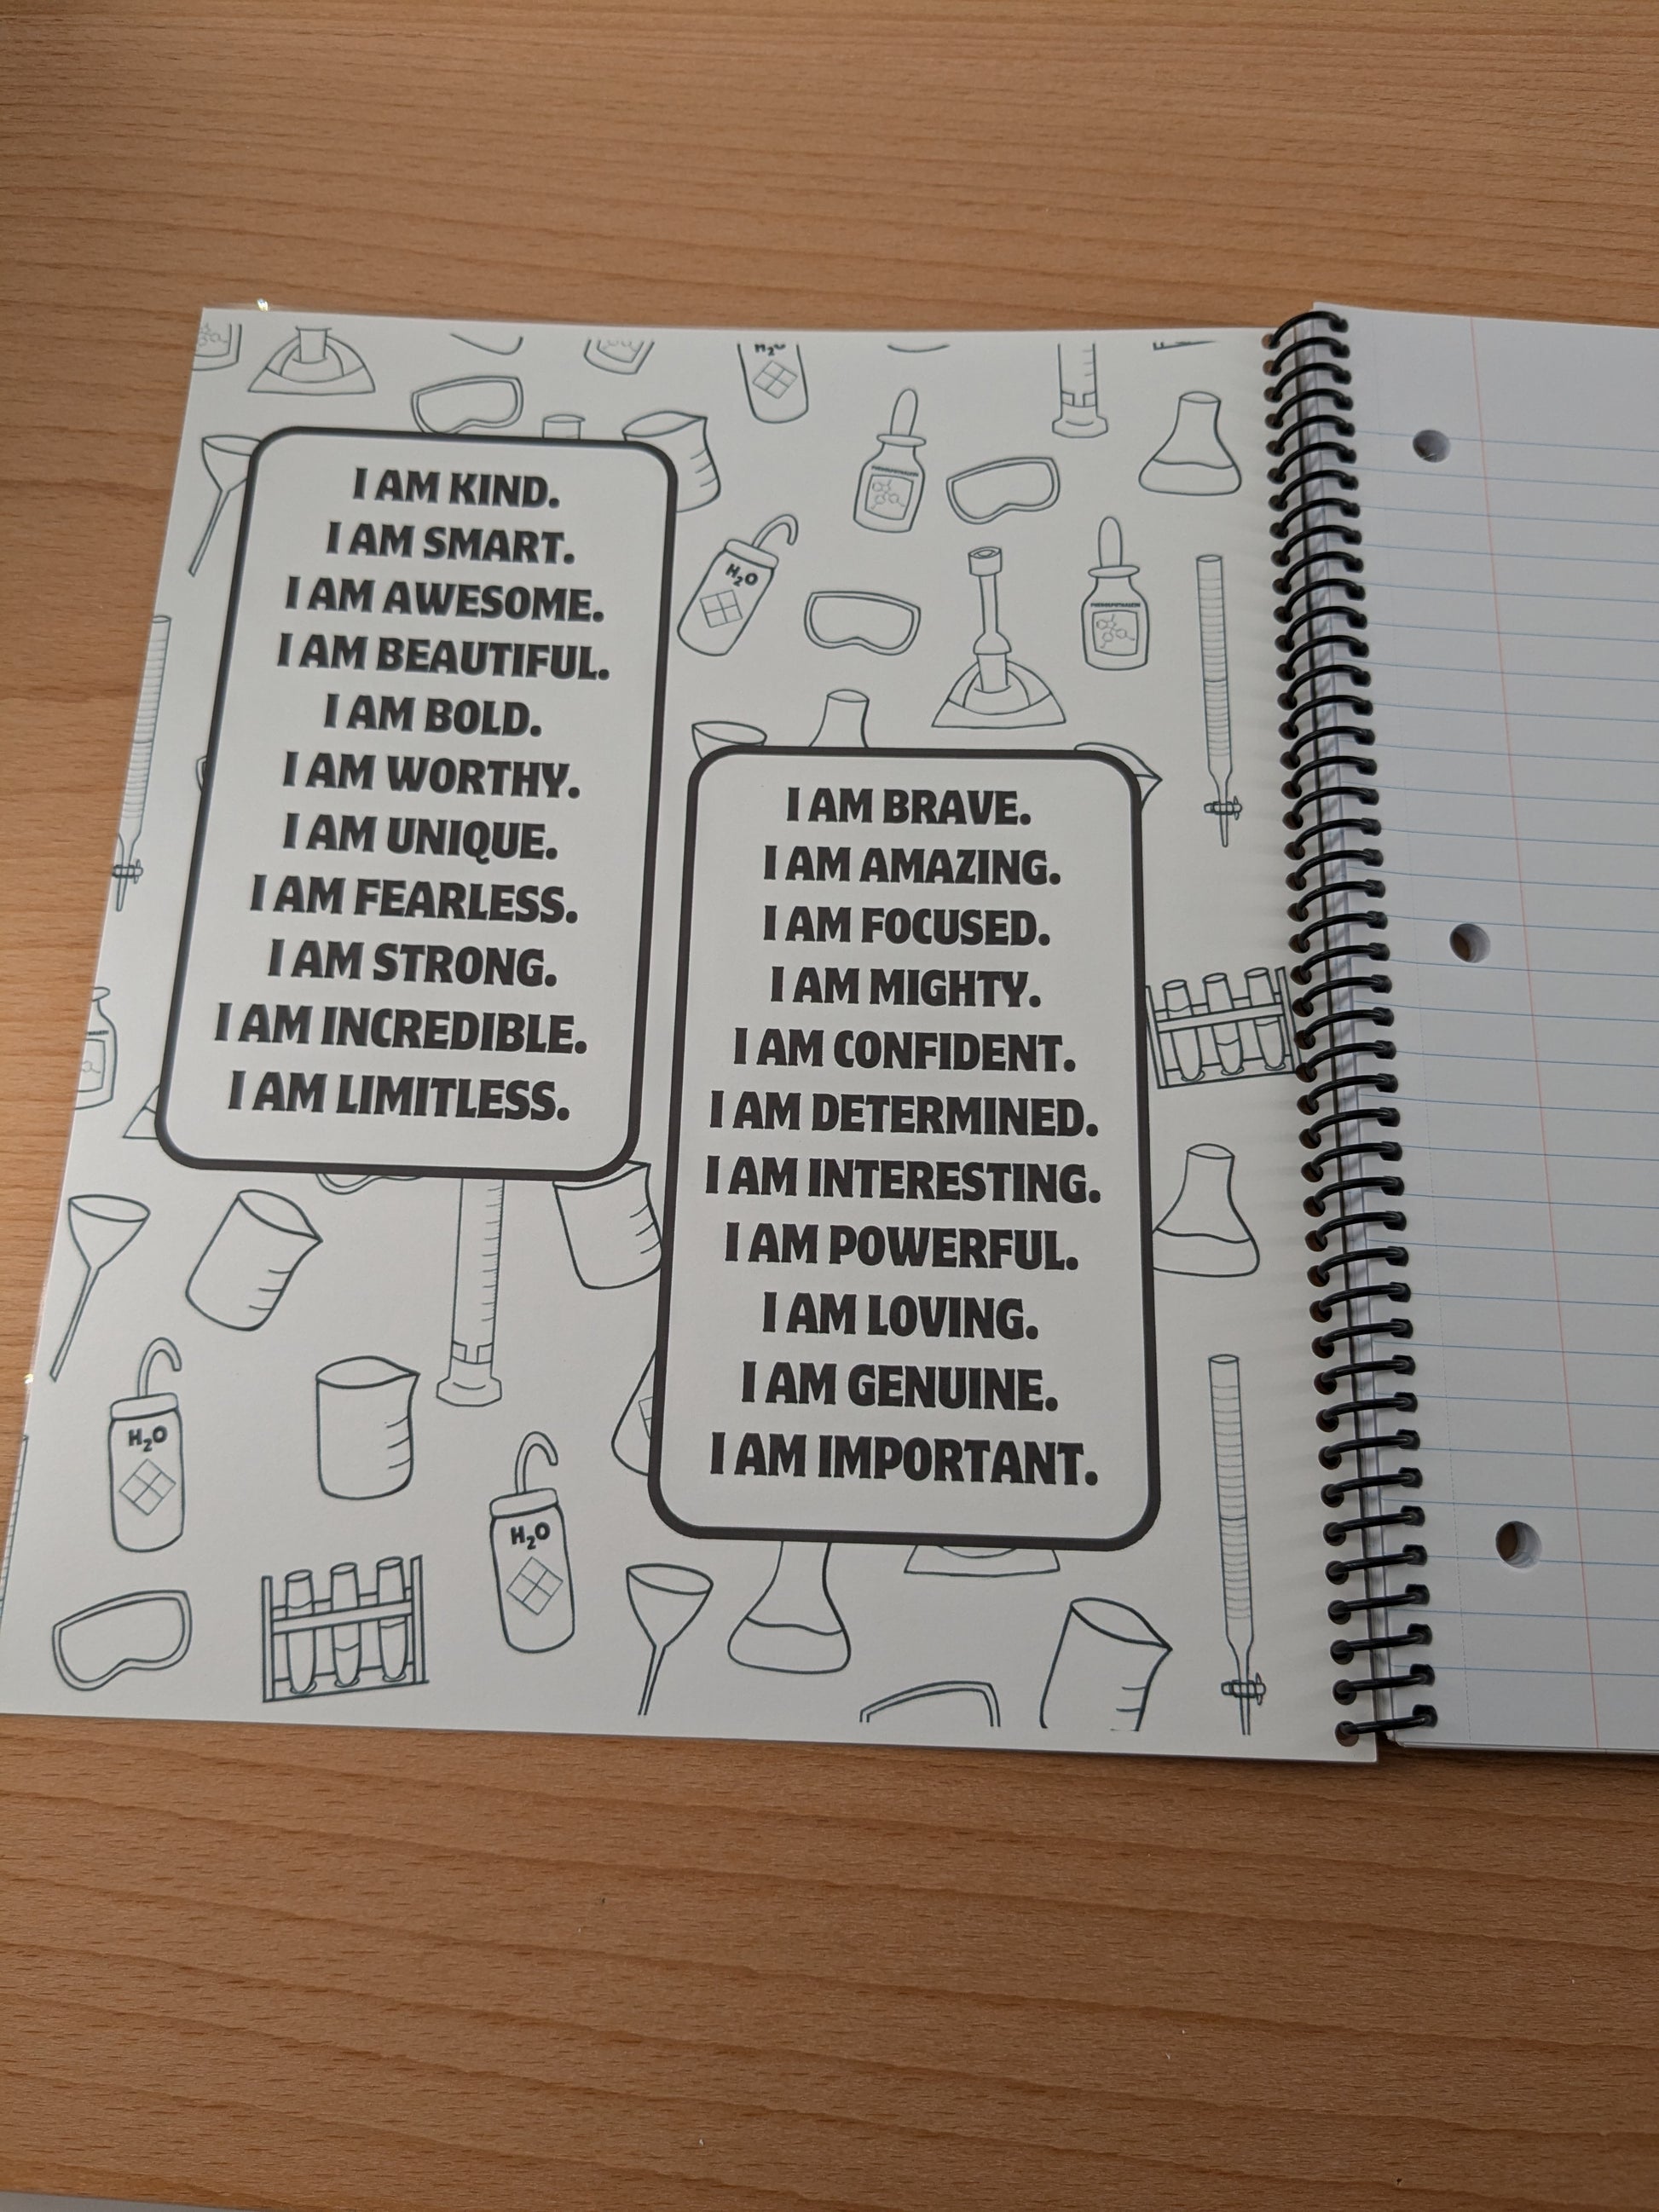 I AM KIND.
I AM SMART.
I AM AWESOME.
I AM BEAUTIFUL.
I AM BOLD.
I AM WORTHY.
I AM UNIQUE.
I AM FEARLESS.
I AM STRONG.
I AM INCREDIBLE.
I AM LIMITLESS.
I AM BRAVE.
I AM AMAZING.
I AM FOCUSED.
I AM MIGHTY.
I AM CONFIDENT.
I AM DETERMINED.
I AM INTERESTING.
I AM POWERFUL.
I AM LOVING.
I AM GENUINE.
I AM IMPORTANT.
H₂O
H₂O
H₂O
H₂O